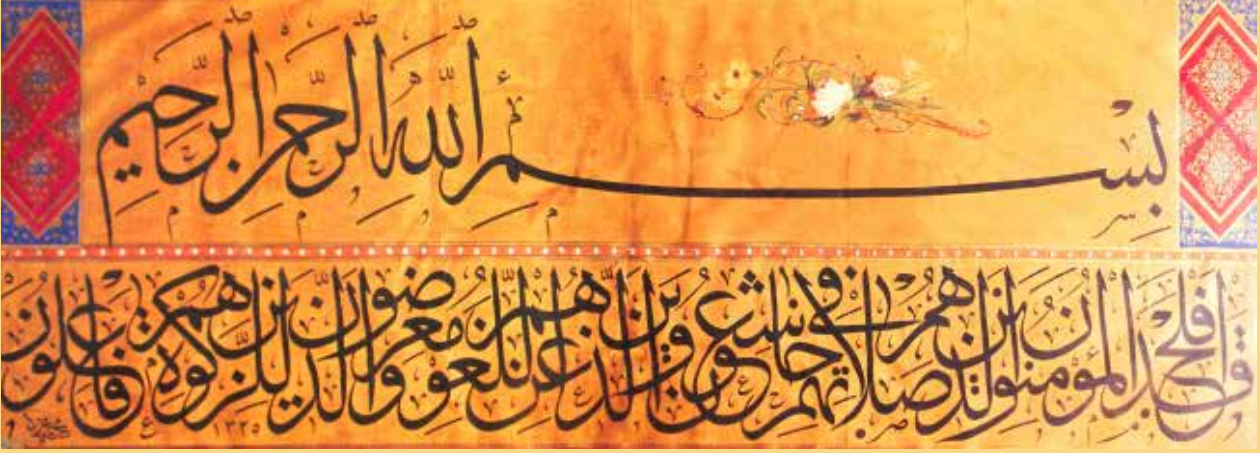 بِسْمِ اللهِ الرَّحْمٰنِ الرَّحِيمِ
قد أفلح المؤمنون الذين هم في صلاتهم خاشعون والذين هم عن اللغو معرضون والذين هم للزكوة فاعلون
١٣٢٥